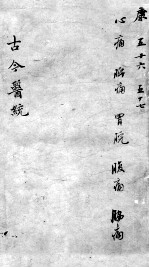 康 五十六 五十七
心痛 脇痛 胃脘 腹痛 腸痛
古今醫統